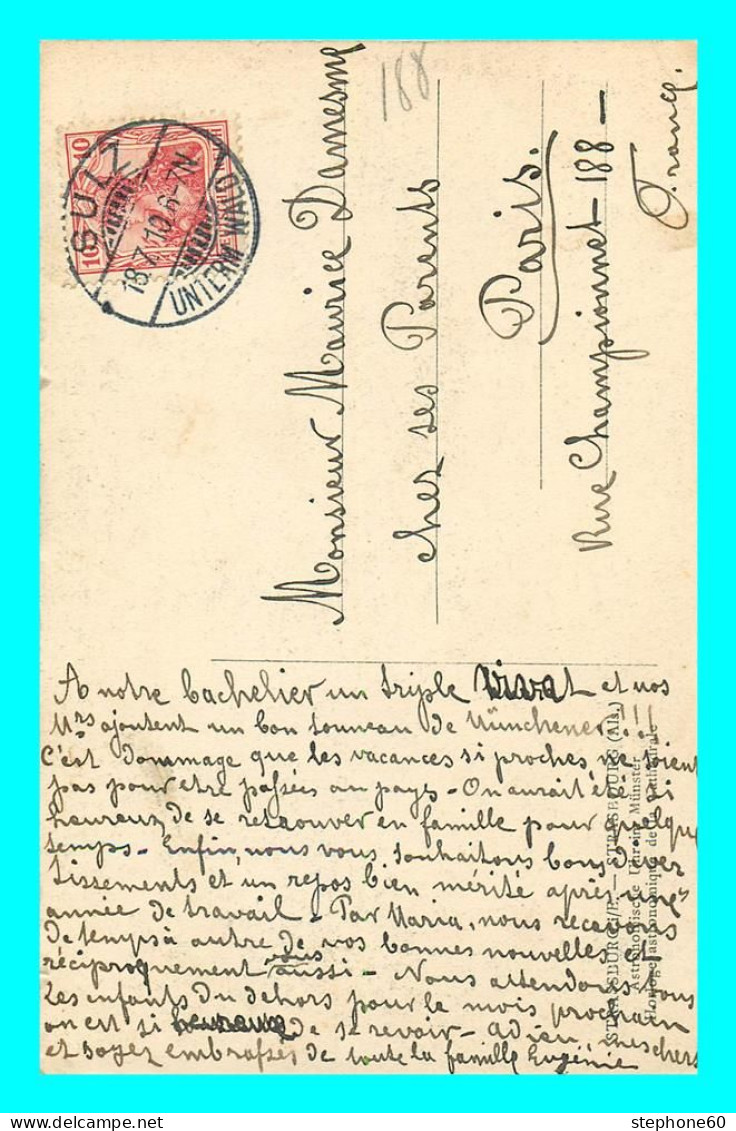 188
10 10
10
SULZ
18.7.10.6-7N
UNTERM WALD
Monsieur Maurice Damesme
chez ses Parents
Paris.
Rue Championnet 188 -
France.
A notre bachelier un triple vivat et nos
Mrs ajoutent un bon tonneau de Münchener!!!
C'est dommage que les vacances si proches ne soient
pas pour etre passées au pays - On aurait été si
heureux de se retrouver en famille pour quelque
temps - Enfin, nous vous souhaitons bons diver
tissements et un repos bien mérité après une
année de travail - Par Maria, nous recevons
de temps à autre de vos bonnes nouvelles et
réciproquement vous aussi - Nous attendons tous
les enfants du dehors pour le mois prochain
on est si heureux de se revoir - Adieu, mes chers
et soyez embrassés de toute la famille Eugénie
STRASSBURG i/E. — STRASBOURG (Als.)
Astronomische Uhr im Münster
Horloge astronomique de la Cathédrale
stephone60